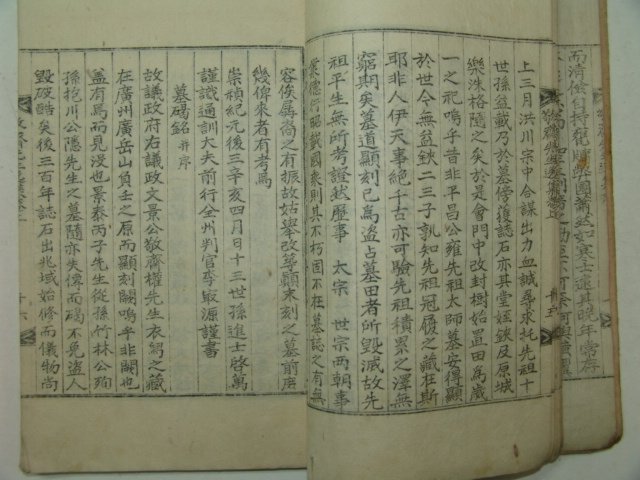 上三月洪川宗中合謀出力血誠尋求托先祖十
世孫益載乃於墓傍獲誌石亦其堂姪鋏及原城
樂洙格隨之矣於是會門中改封樹始置田爲歲
一之祀嗚乎昔非平昌公雍先祖太師墓安得顯
於世今無益鋏二三子孰知先祖冠屨之藏在斯
耶非人伊天事絶千古亦可驗先祖積累之澤無
窮期矣墓道顯刻已爲盜占墓田者所毀滅故先
祖平生無所考證然歷事 太宗 世宗兩朝事
業德行昭載國乘則其不朽固不在墓誌之有無
容俟孱裔之有振故姑擧改筭顯末刻之墓前庶
幾俾來者有考焉
崇禎紀元後三辛亥四月日十三世孫進士啓萬
謹識通訓大夫前行全州判官李敏源謹書
墓碣銘 幷序
故議政府右議政文景公敬齋權先生衣舃之藏
在廣州廣岳山負壬之原而顯刻闕嗚乎非闕也
盖有焉而見沒也景泰丙子先生從孫竹林公殉
孫抱川公隱先生之墓隨亦失傳而碣不免盜人
毀破酷矣後三百年誌石出兆域始修而儀物尚
十六